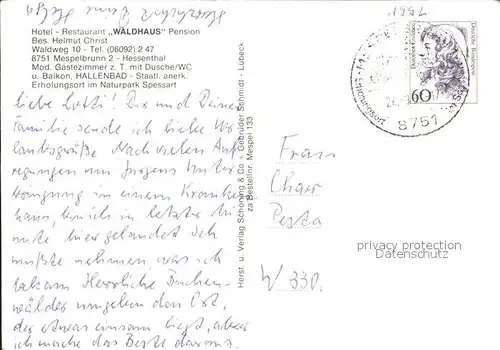 1991
Hotel - Restaurant „WALDHAUS" Pension
Bes. Helmut Christ
Waldweg 10 - Tel. (06092) 2 47
8751 Mespelbrunn 2 - Hessenthal
Mod. Gästezimmer z. T. mit Dusche/WC
u. Balkon, HALLENBAD - Staatl. anerk.
Erholungsort im Naturpark Spessart
liebe Lotti! Dir und Deiner
Familie sende ich liebe Ur-
laubsgrüße. Nach vielen Auf-
regungen um Jürgens Unter-
bringung in einem Kranken-
haus, bin ich in letzter Mi-
nute hier gelandet. Ich
mußte nehmen, was ich
bekam. Herrliche Buchen-
wälder umgeben den Ort,
der etwas einsam liegt, aber
ich mache das Beste daraus.
Herst. u. Verlag Schöning & Co - Gebrüder Schmidt - Lübeck
zu Bestellnr. Mespel 133
Deutsche Bundespost
60
Erholungsort
8751
Frau
W 330
privacy protection
Datenschutz